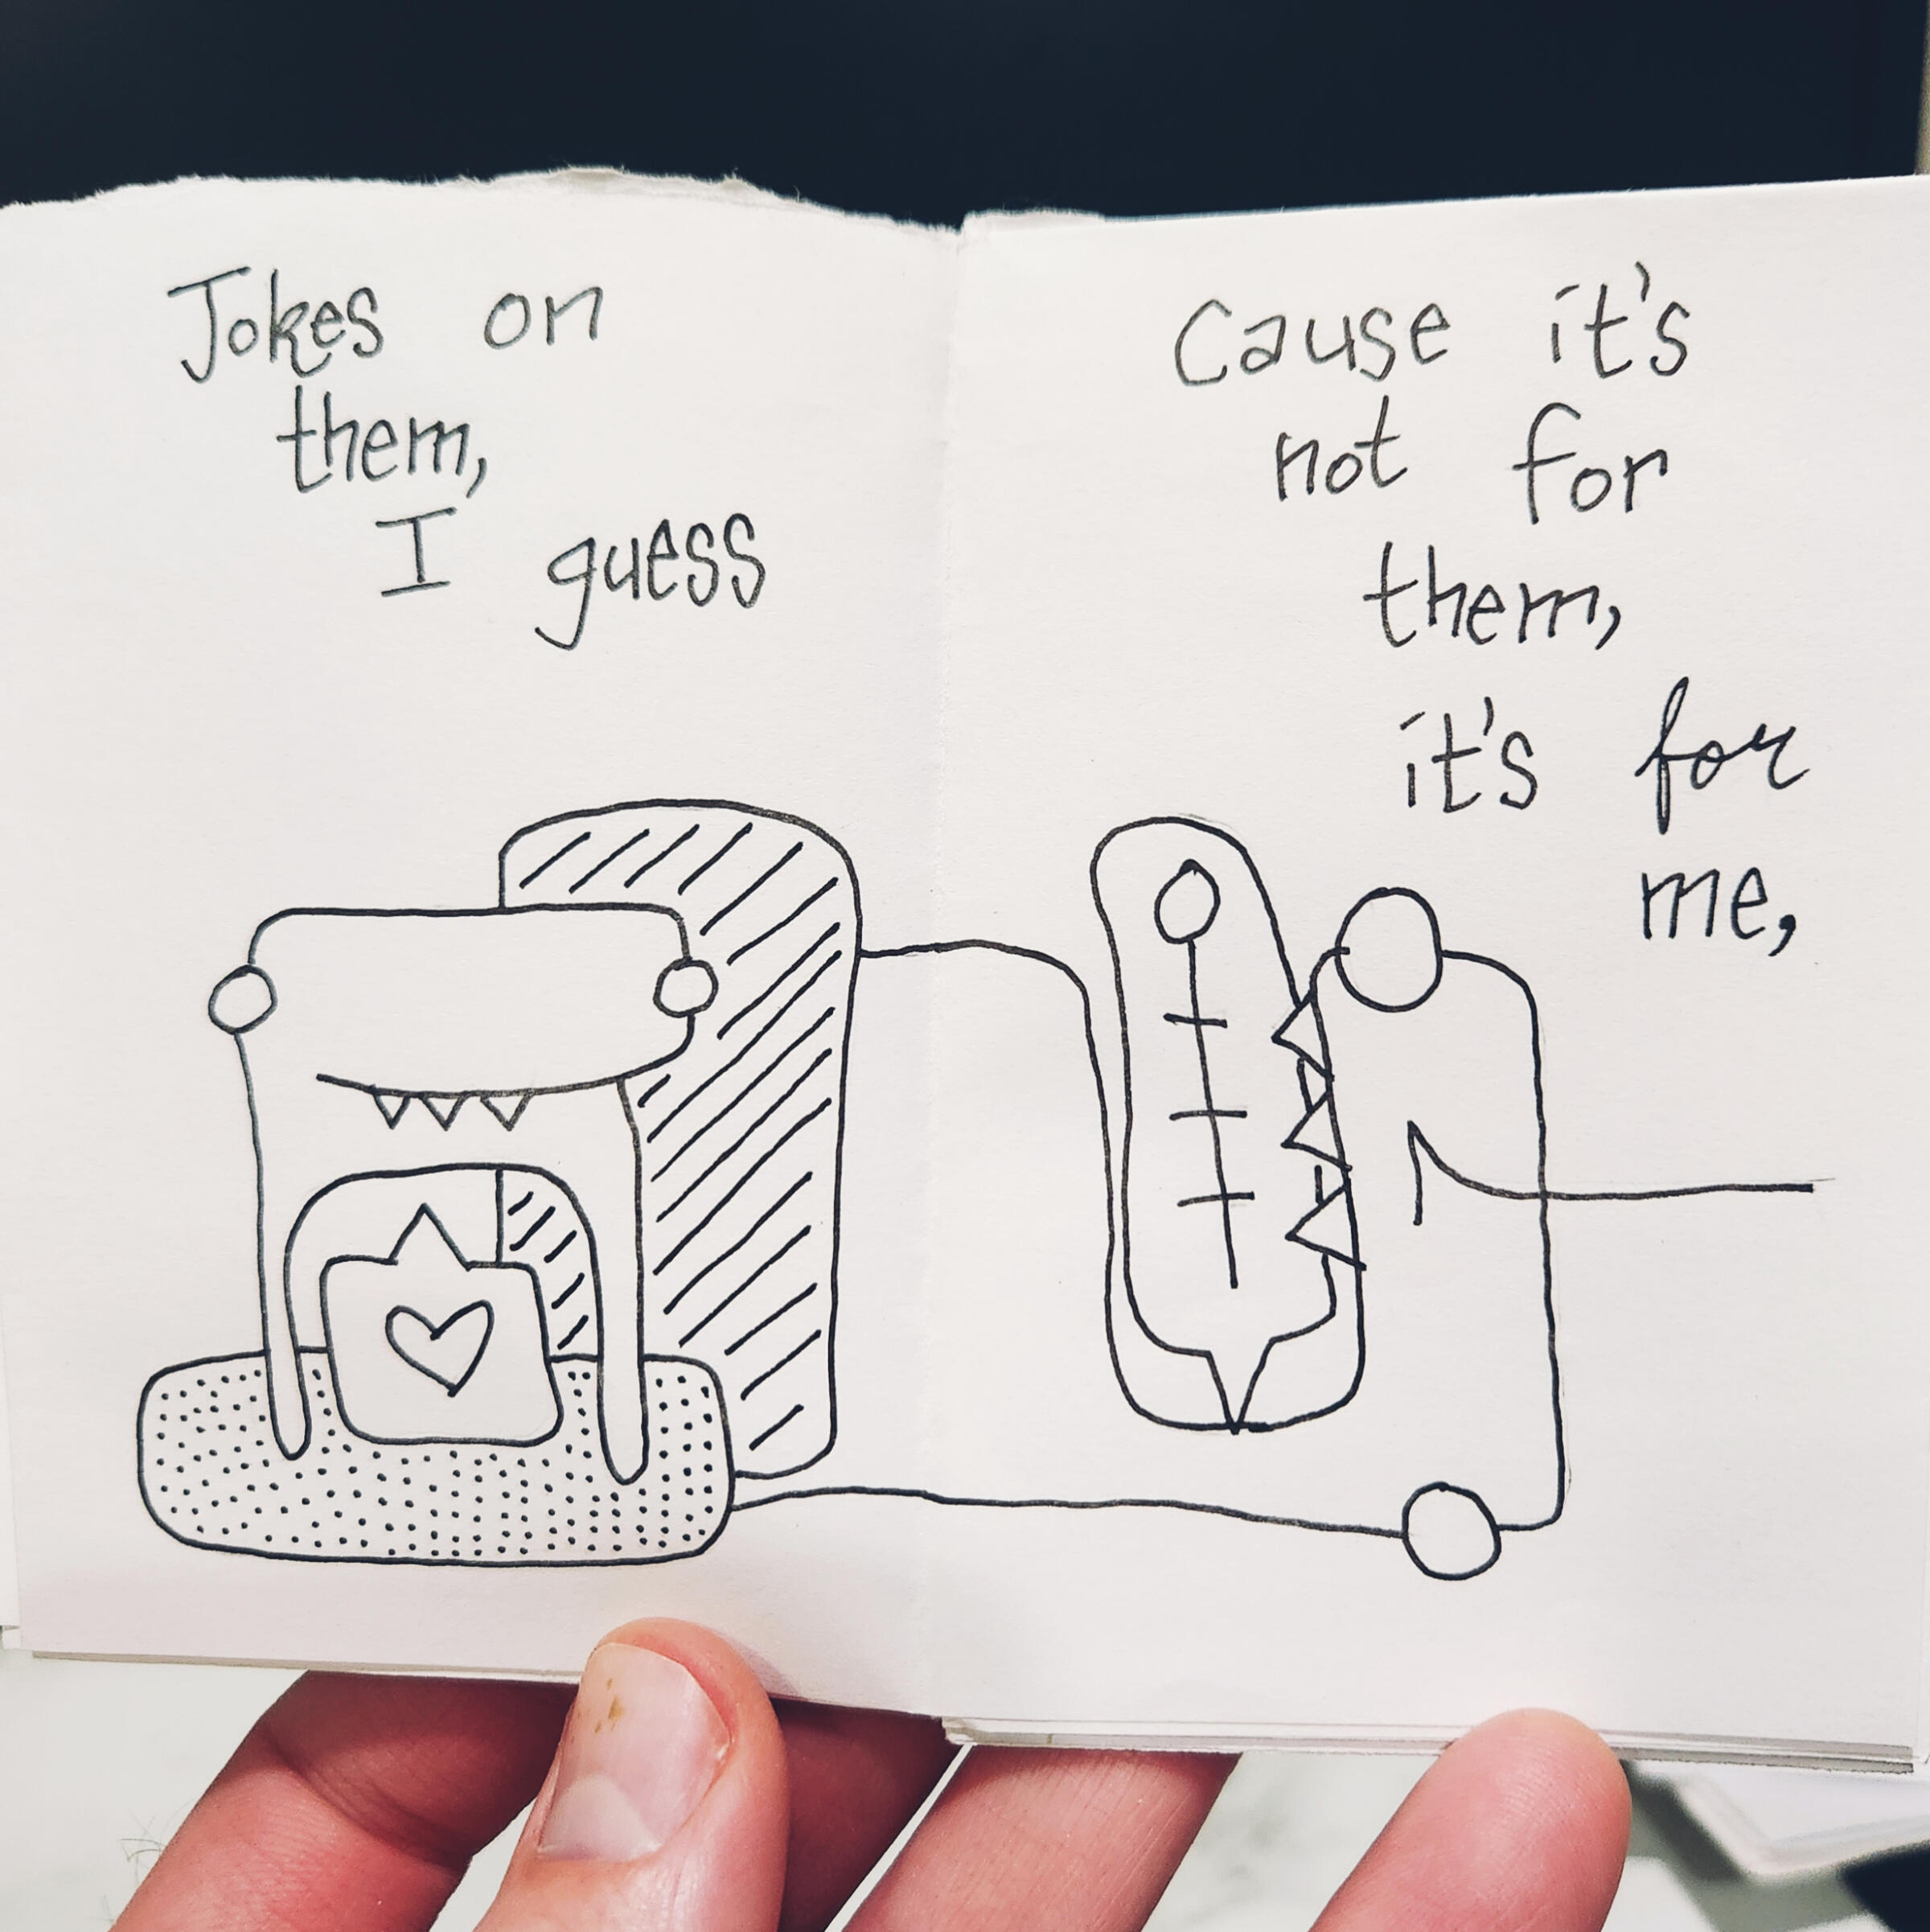 Jokes on
them,
I guess
Cause it's
not for
them,
it's for
me,